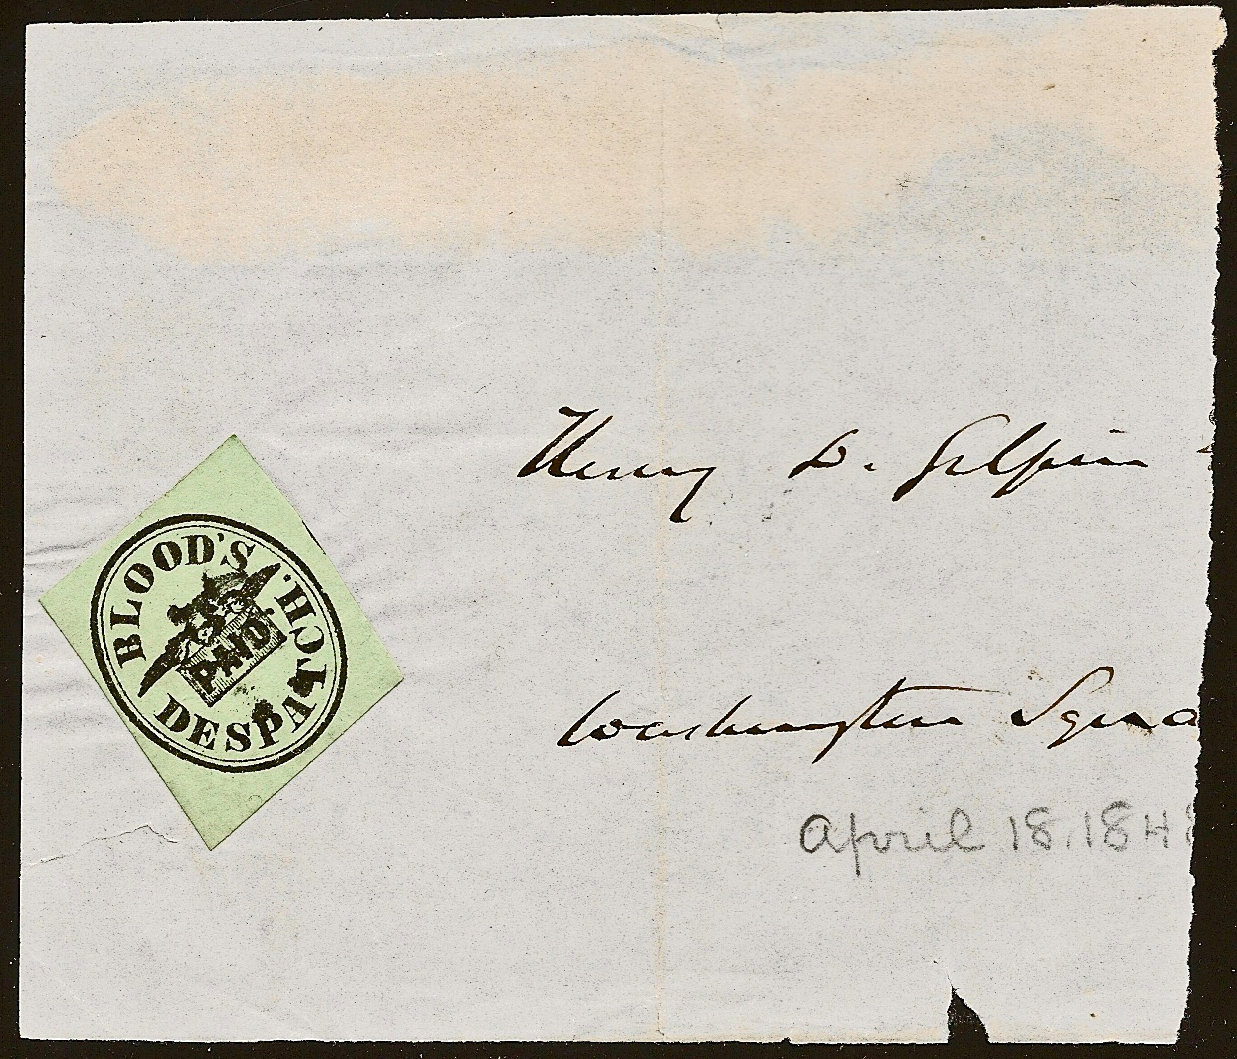 BLOOD'S
PAID.
DESPATCH.
Henry D. Gilpin
Washington Squa
April 18. 184